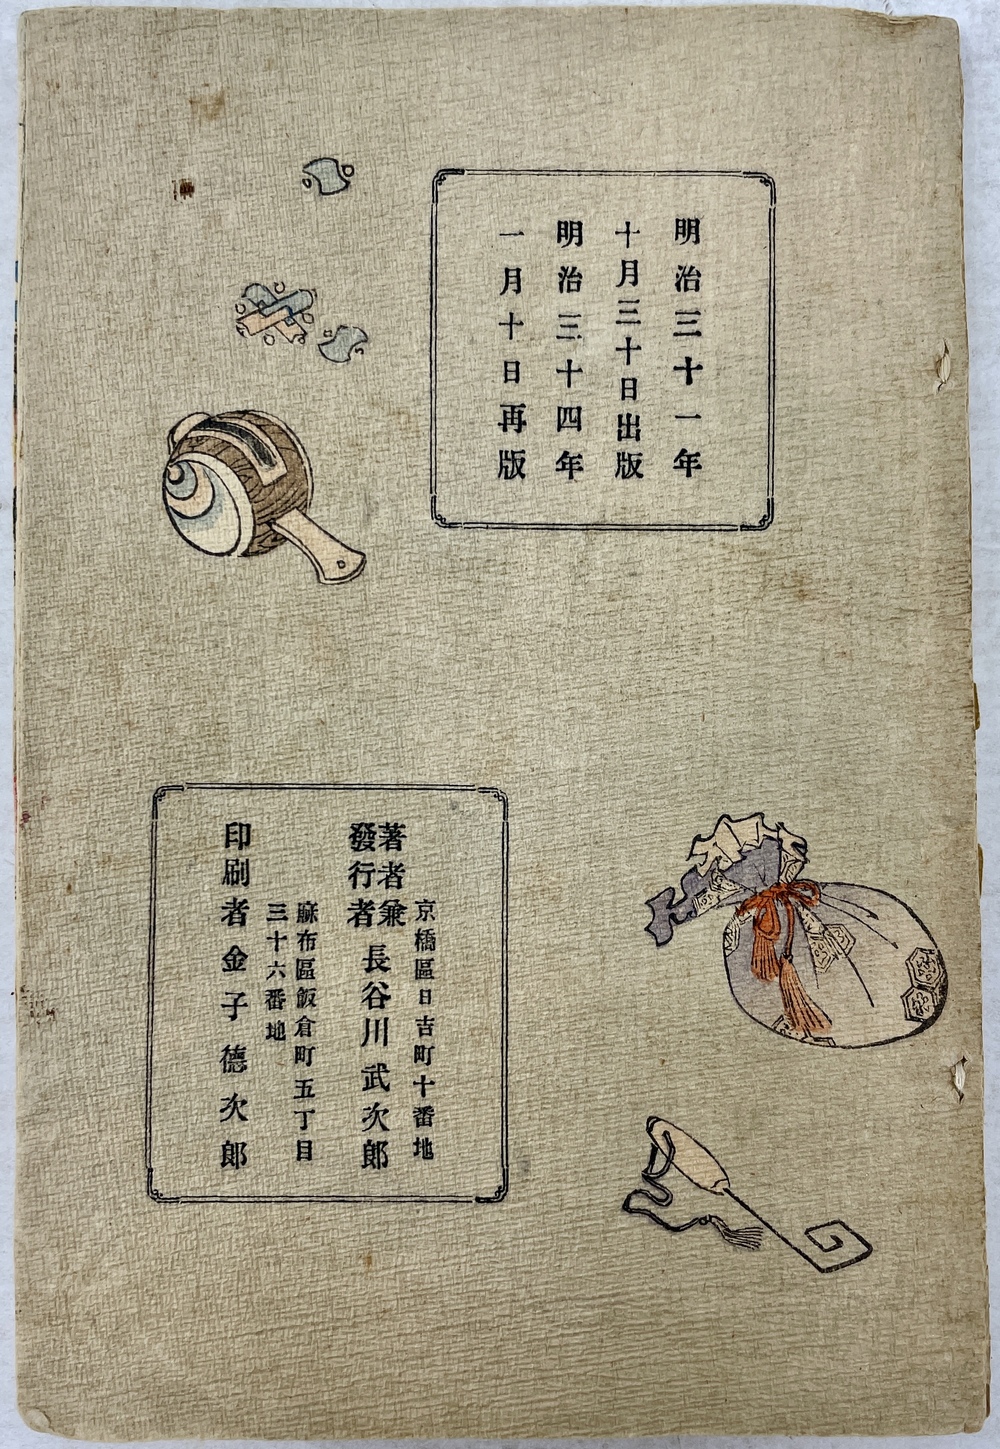 明治三十一年
十月三十日出版
明治三十四年
一月十日再版
京橋區日吉町十番地
著者兼
發行者
長谷川武次郎
麻布區飯倉町五丁目
三十六番地
印刷者 金子德次郎